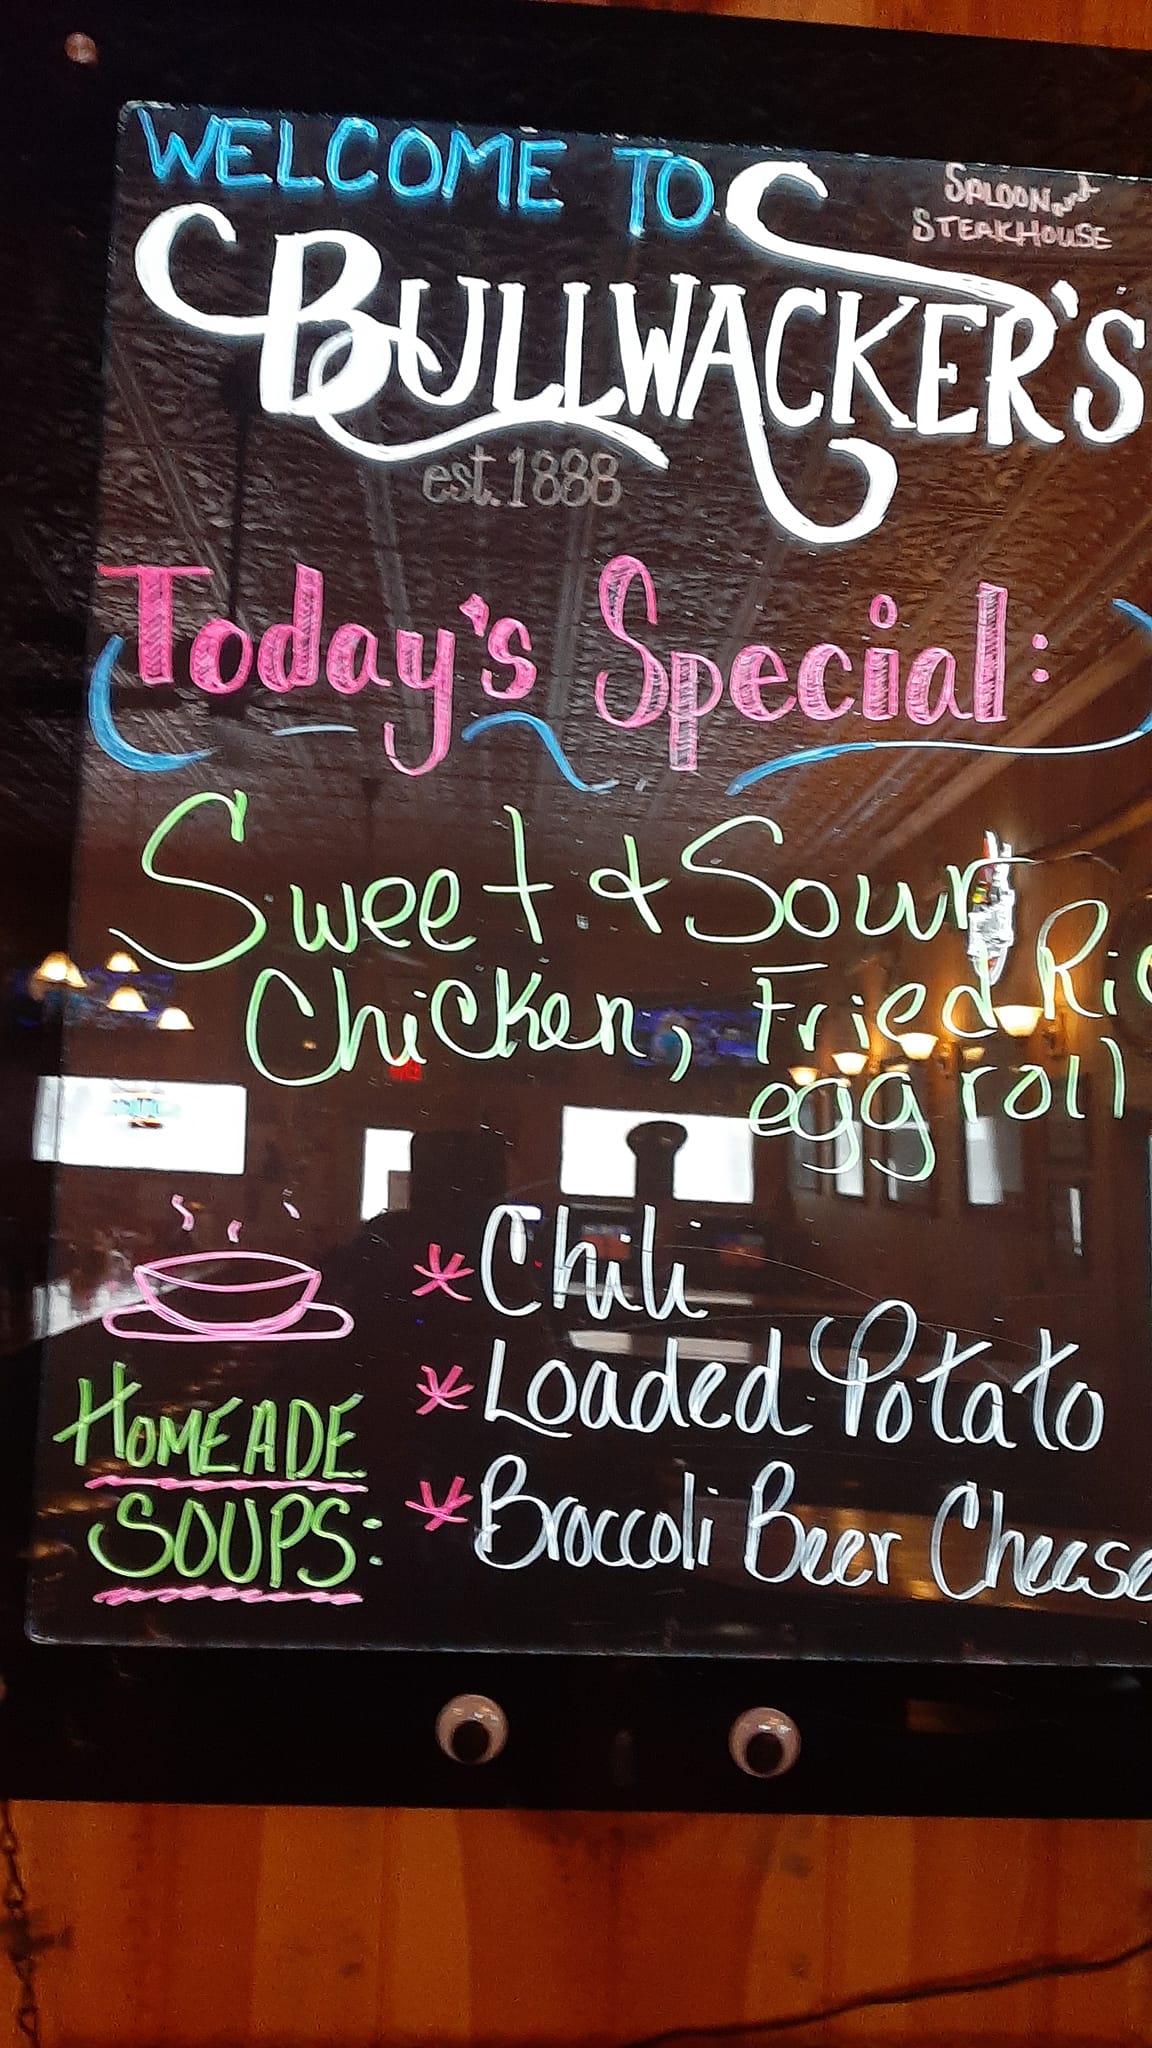 WELCOME TO
SALOON and
STEAKHOUSE
BULLWACKER'S
est. 1888
Today's Special:
Sweet & Sour
Chicken, Fried Ric
egg roll
* Chili
* Loaded Potato
* Broccoli Beer Cheese
HOMEADE
SOUPS: